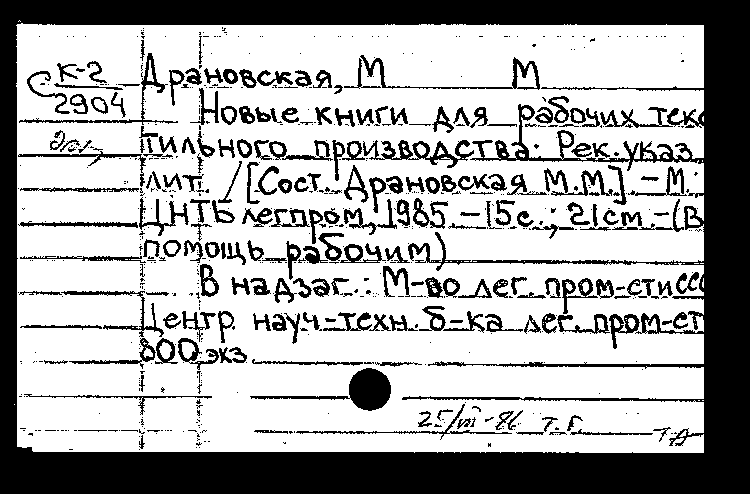 С К-2 Драновская, М М
2904 Новые книги для рабочих текс
тильного производства: Рек. указ.
лит. / [Сост. Драновская М.М.]. – М.:
ЦНТБ легпром, 1985. – 15с.; 21см. – (В
помощь рабочим)
В надзаг.: М-во лег. пром-сти ССС
Центр. науч.-техн. б-ка лег. пром-ст
800 экз.
25/VII-86 Т. Г.